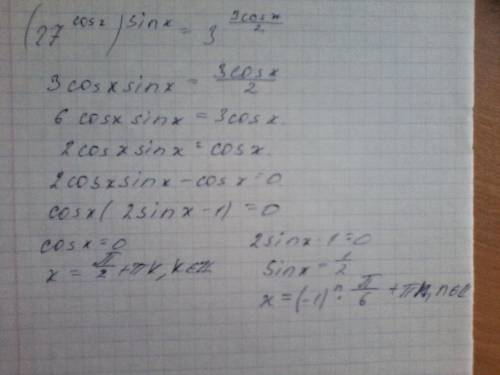 (27^cosx)^sinx = 3^(3cosx/2)
3cosxsinx = 3cosx/2
6cosxsinx = 3cosx.
2cosxsinx = cosx.
2cosxsinx - cosx = 0
cosx(2sinx - 1) = 0
cosx = 0 2sinx - 1 = 0
x = π/2 + πk, k∈Z sinx = 1/2
x = (-1)^n · π/6 + πn, n∈Z